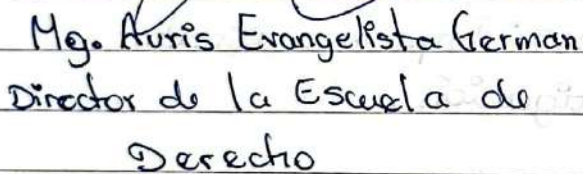 Mg. Auris Evangelista German
Director de la Escuela de
Derecho